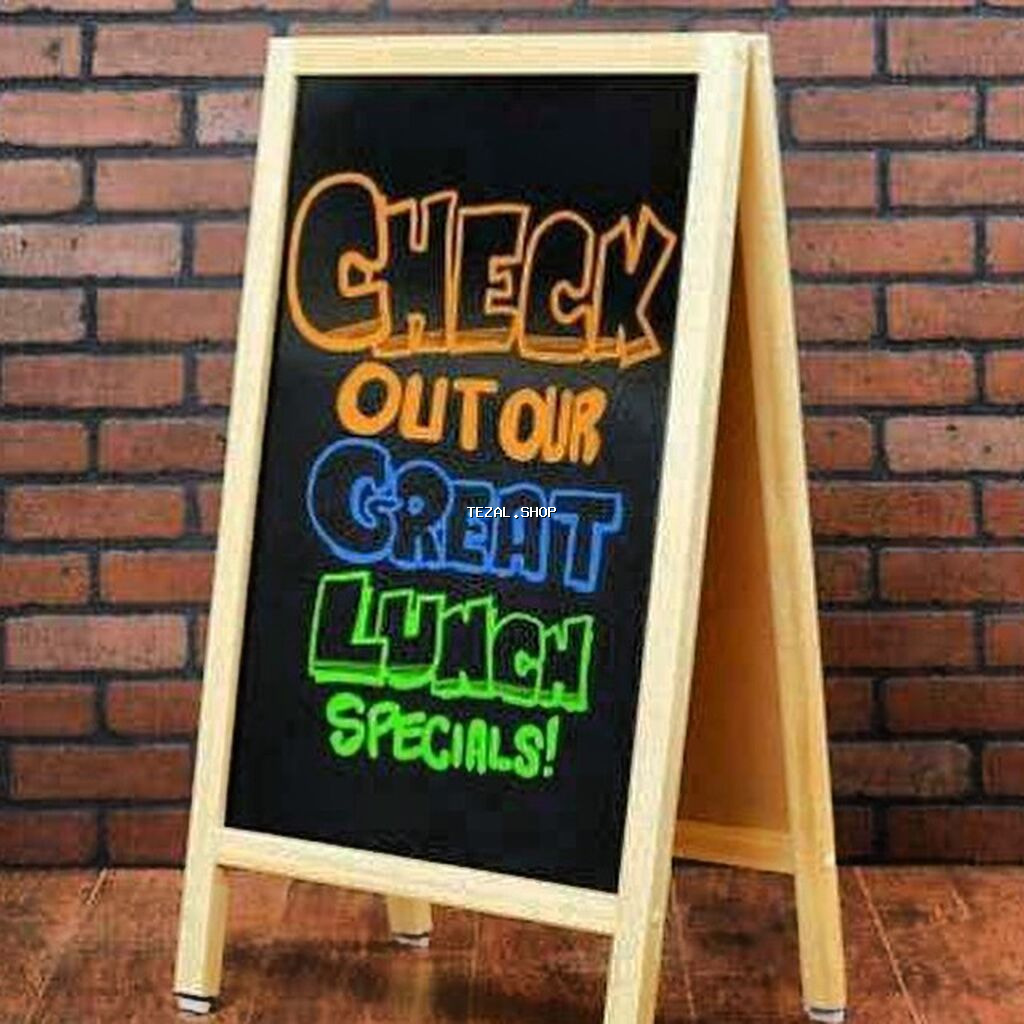 CHECK
OUT OUR
GREAT
TEZAL.SHOP
LUNCH
SPECIALS!